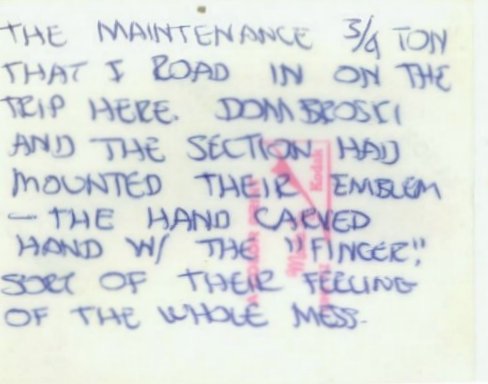 THE MAINTENANCE 3/4 TON
THAT I ROAD IN ON THE
TRIP HERE. DOMBROSKI
AND THE SECTION HAD
MOUNTED THEIR EMBLEM
— THE HAND CARVED
HAND W/ THE "FINGER".
SORT OF THEIR FEELING
OF THE WHOLE MESS.
Kodak